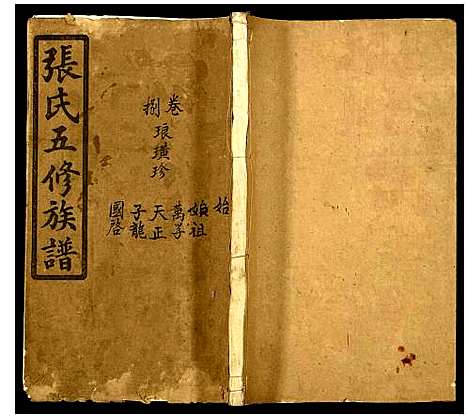 張氏五修族譜
卷
捌
琅璜珍
始
始祖
萬孚
天正
子龍
國啓